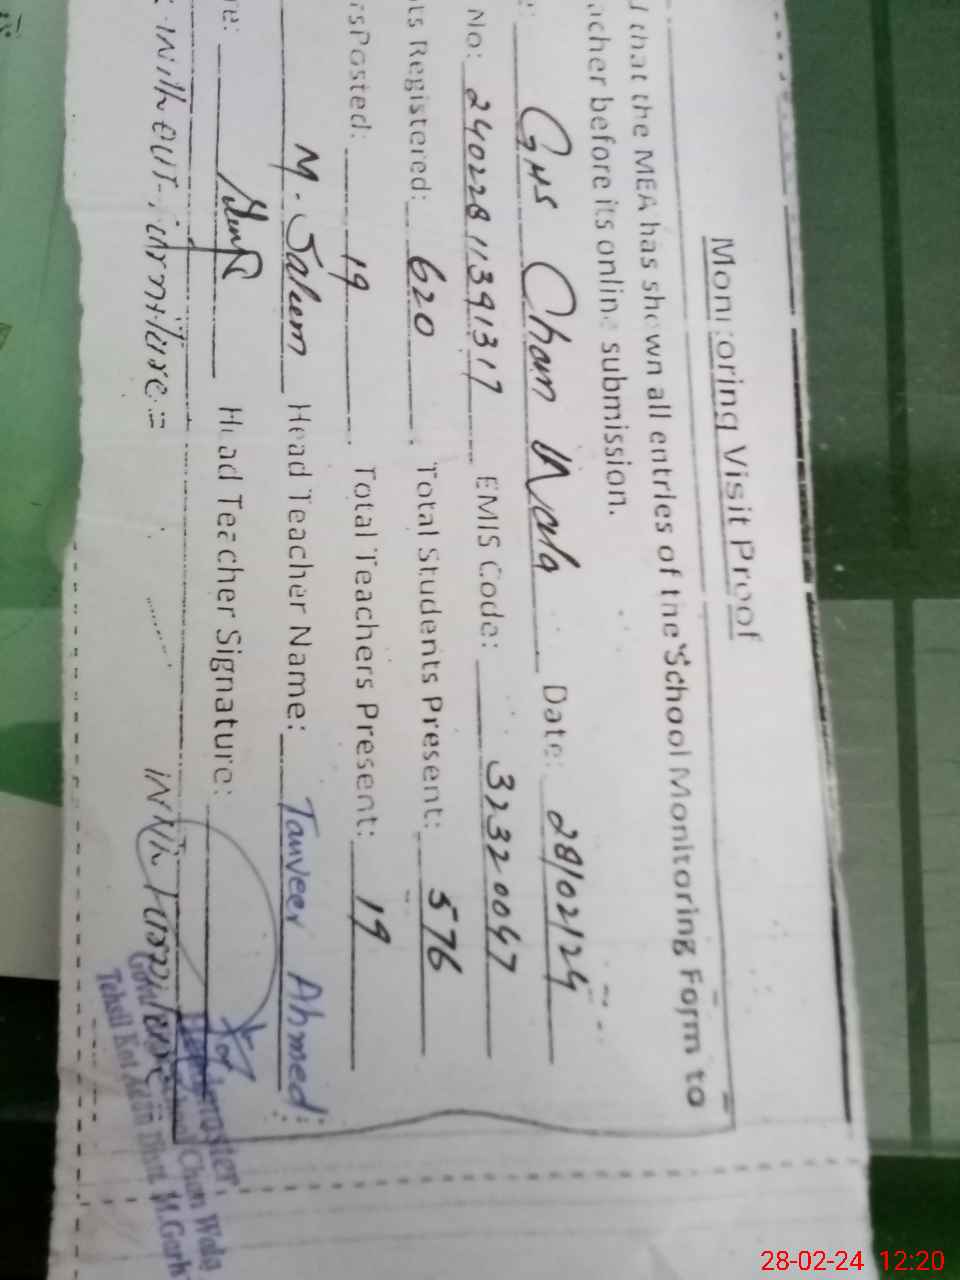 Monitoring Visit Proof
d that the MEA has shown all entries of the School Monitoring Form to
acher before its online submission.
e: GHS Chan Wala Date: 28/02/24
No: 24022811391317 EMIS Code: 32320047
ts Registered: 620 Total Students Present: 576
rsPosted: 19 Total Teachers Present: 19
M. Saleem Head Teacher Name: Tanveer Ahmed
re: Head Teacher Signature:
With out furniture = With Furniture
Headmaster,
Govt. High School Chan Wala
Tehsil Kot Addu Distt. M.Garh
28-02-24 12:20